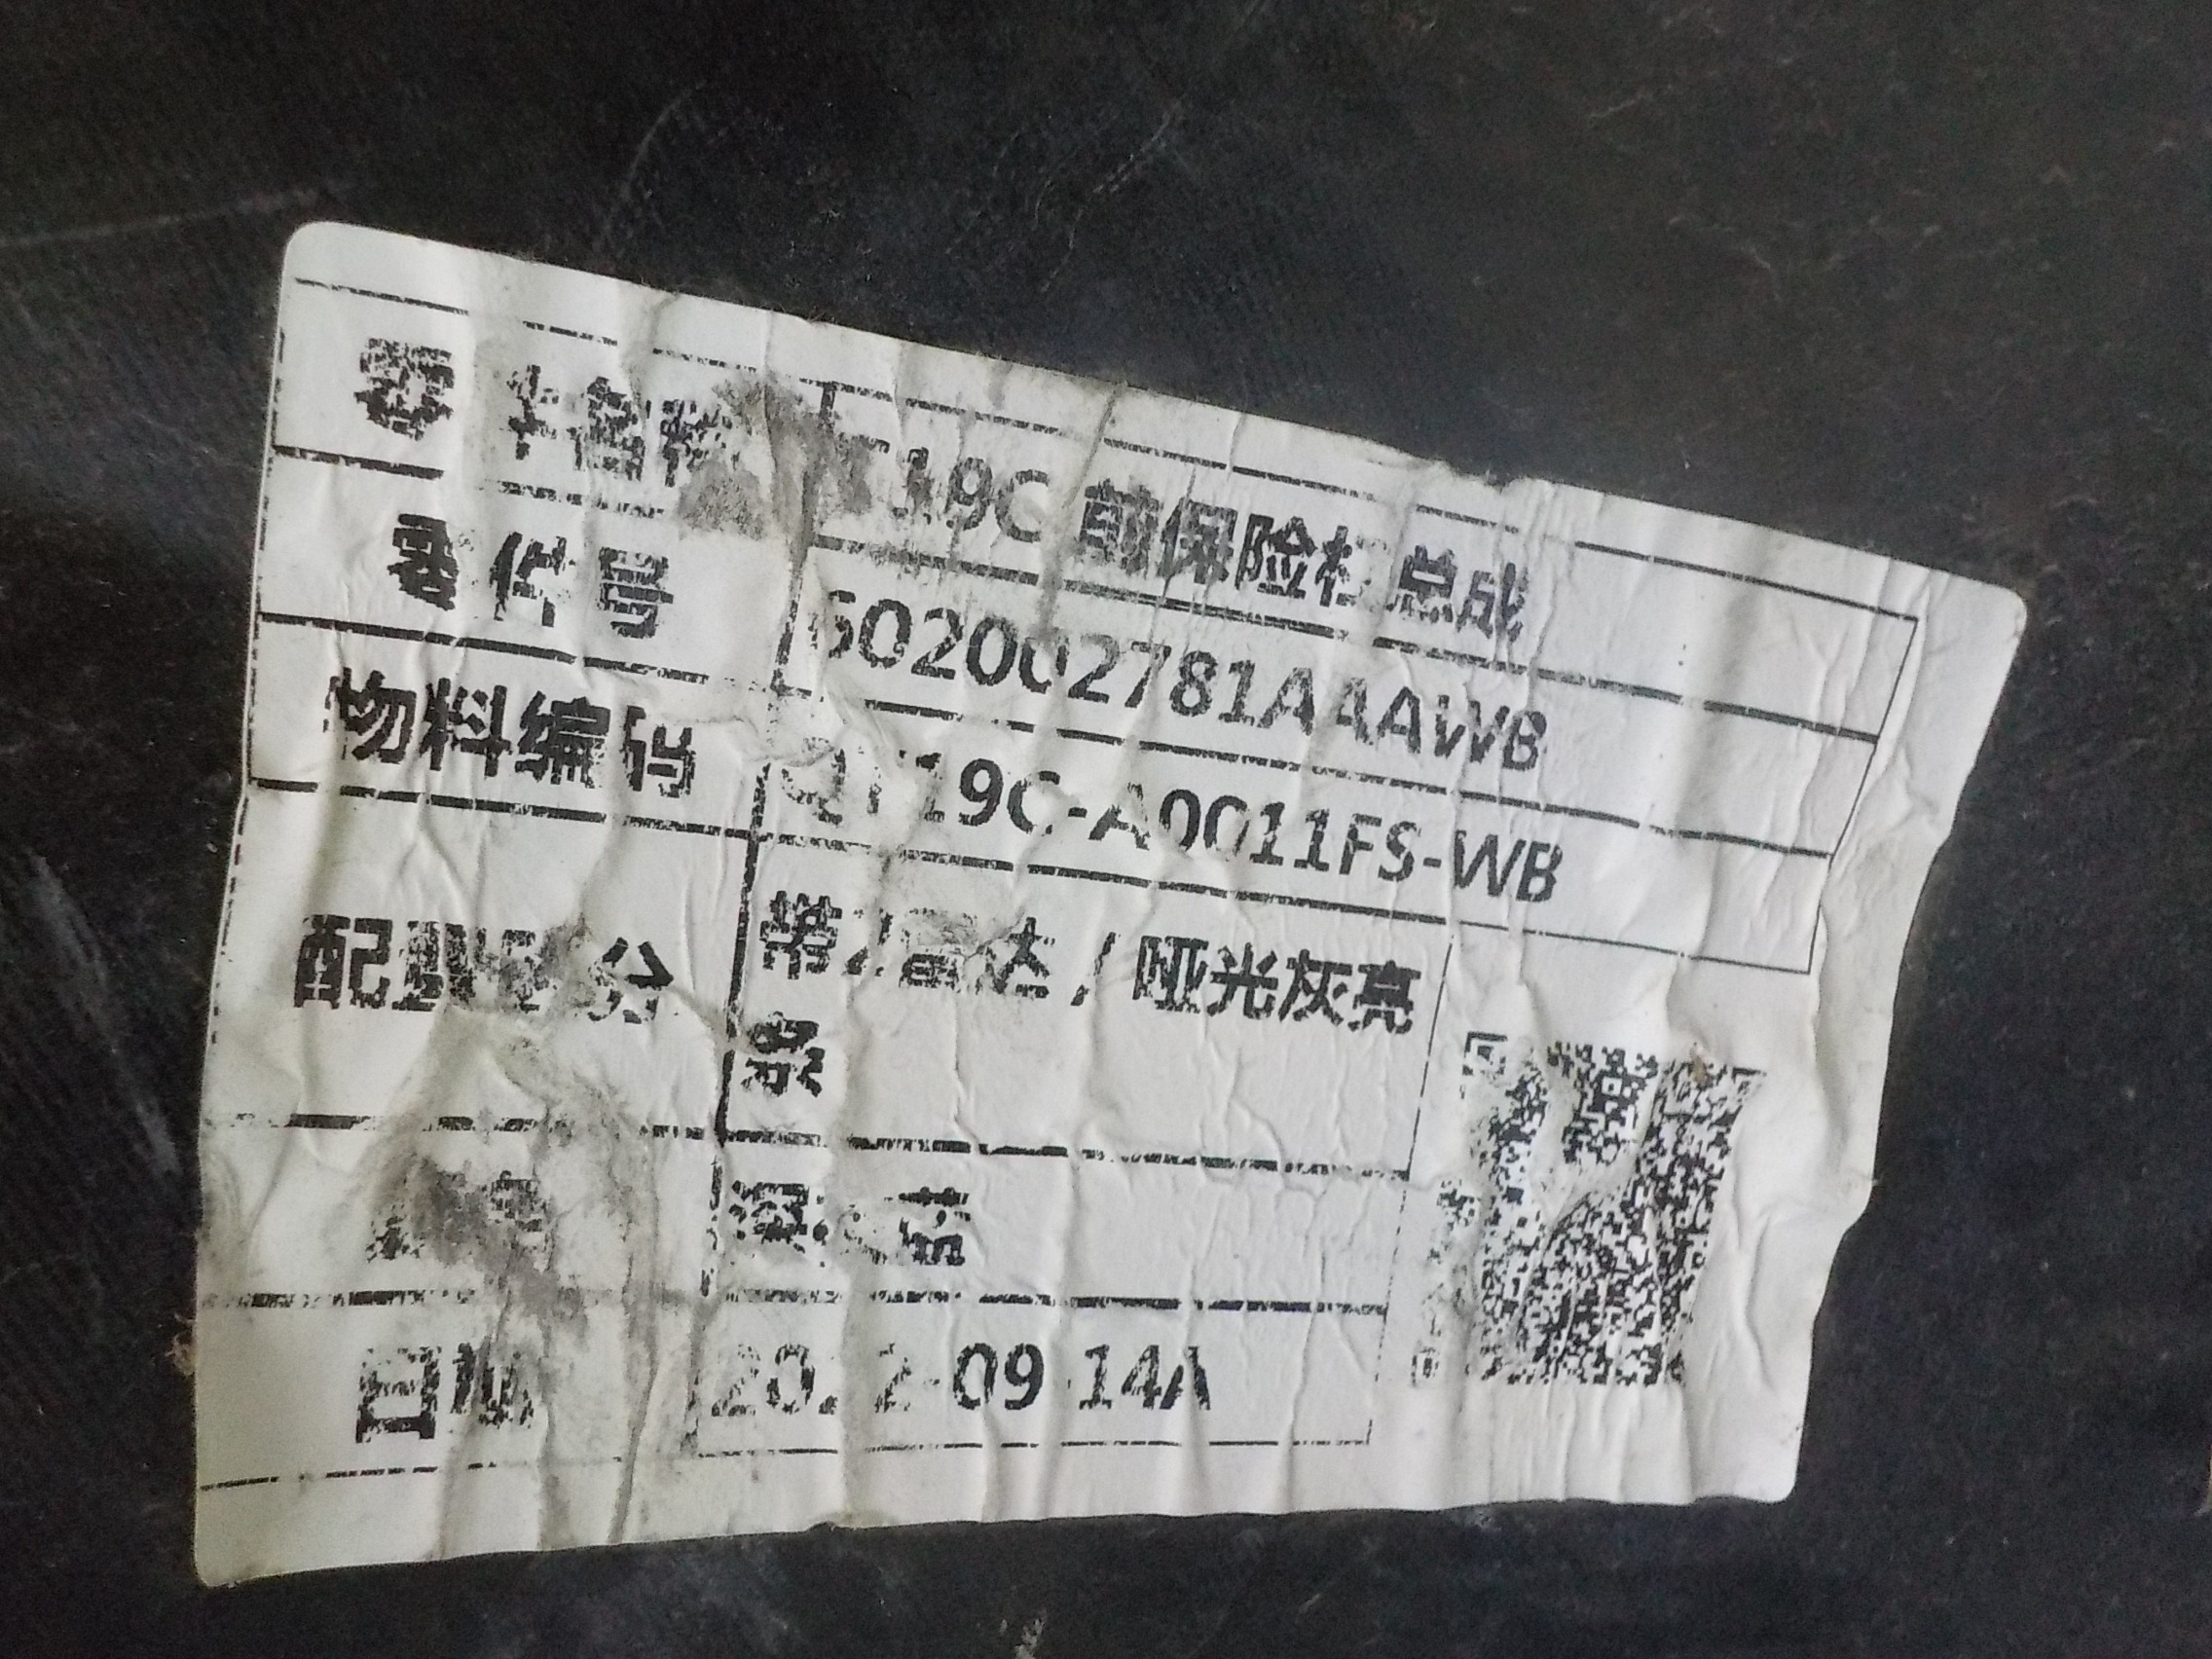 零件名称 T19C 前保险杠总成
零件号 602002781AAAWB
物料编码 QT19C-A0011FS-WB
配置区分 带雷达/哑光灰亮
颜色
日期 09 14A